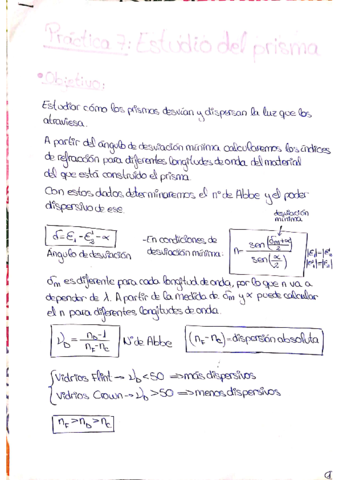 Práctica 7: Estudio del prisma
• Objetivo:
Estudiar cómo los prismas desvían y dispersan la luz que los
atraviesa.
A partir del ángulo de desviación mínima calcularemos los índices
de refracción para diferentes longitudes de onda del material
del que está construido el prisma.
Con estos datos determinaremos el nº de Abbe y el poder
dispersivo de ese
desviación
mínima
δ = ε₁ - ε₂' - α
Ángulo de desviación
- En condiciones de
desviación mínima.
n = sen((δm+α)/2) / sen(α/2)
δm es diferente para cada longitud de onda, por lo que n va a
depender de λ. A partir de la medida de δm y α puede calcular
el n para diferentes longitudes de onda.
νD = (nD - 1) / (nF - nC) Nº de Abbe (nF - nC) = dispersión absoluta
Vidrios Flint → νD < 50 ⇒ más dispersivos
Vidrios Crown → νD > 50 ⇒ menos dispersivos
nF > nD > nC